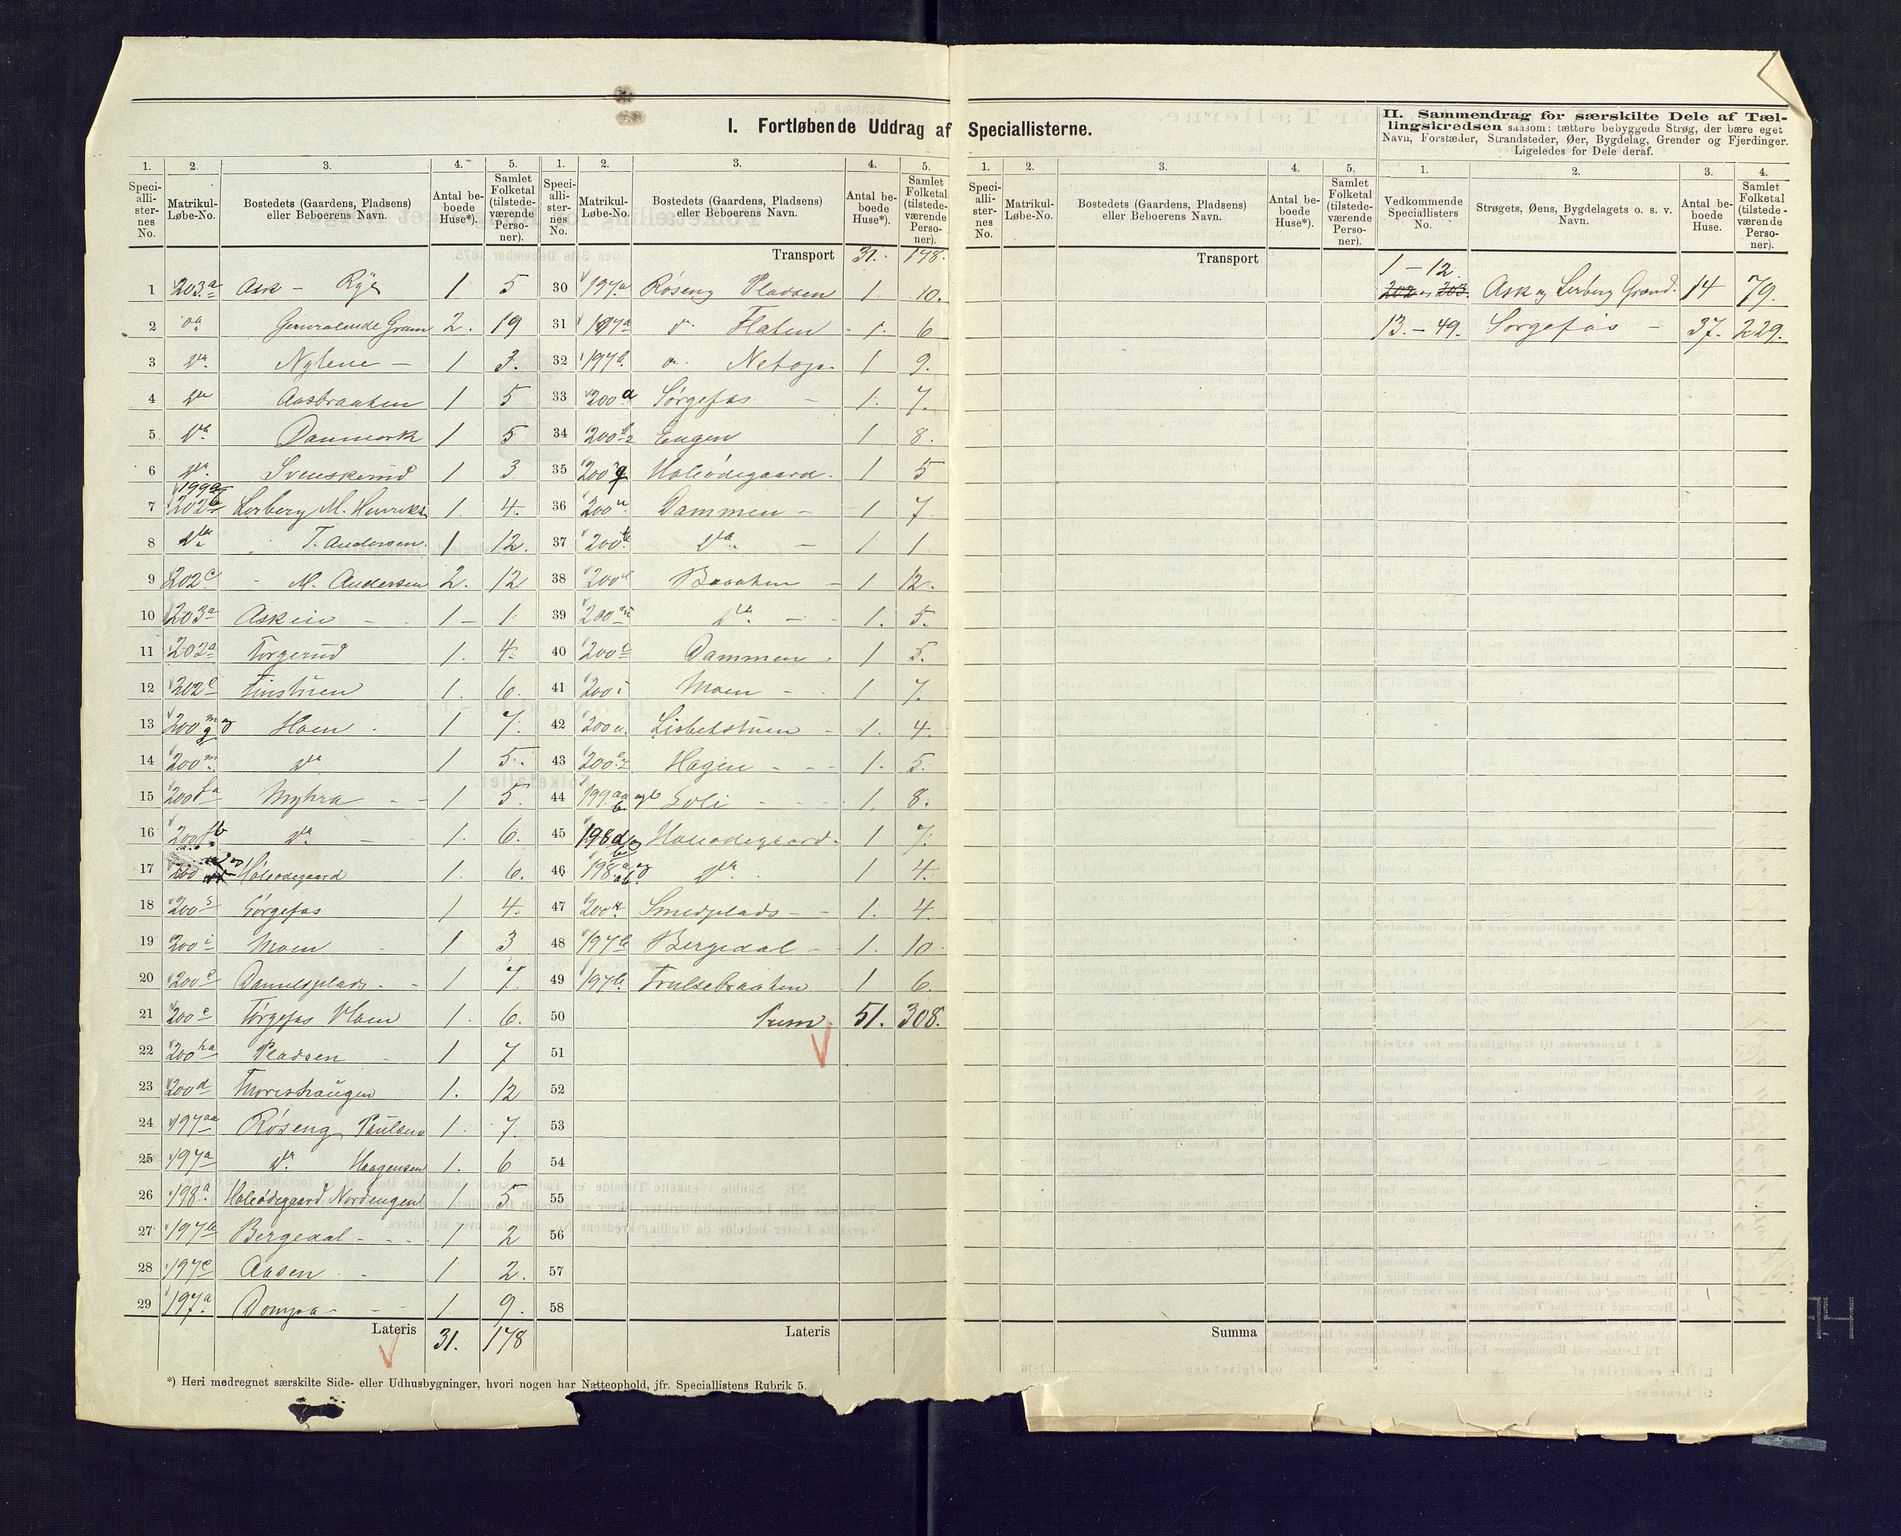 I. Fortløbende Uddrag af Speciallisterne.
II. Sammendrag for særskilte Dele af Tællingskredsen saasom: tættere bebyggede Strøg, der bære eget Navn, Forstæder, Strandsteder, Øer, Bygdelag, Grender og Fjerdinger. Ligeledes for Dele deraf.
1. 2. 3. 4. 5. 1. 2. 3. 4. 5. 1. 2. 3. 4. 5. 1. 2. 3. 4.
Speciallisternes No. Matrikul-Løbe-No. Bostedets (Gaardens, Pladsens) eller Beboerens Navn. Antal beboede Huse*). Samlet Folketal (tilstedeværende Personer).
Speciallisternes No. Matrikul-Løbe-No. Bostedets (Gaardens, Pladsens) eller Beboerens Navn. Antal beboede Huse*). Samlet Folketal (tilstedeværende Personer).
Speciallisternes No. Matrikul-Løbe-No. Bostedets (Gaardens, Pladsens) eller Beboerens Navn. Antal beboede Huse*). Samlet Folketal (tilstedeværende Personer).
Vedkommende Speciallisters No. Strøgets, Øens, Bygdelagets o. s. v. Navn. Antal beboede Huse. Samlet Folketal (tilstedeværende Personer).
1 203a Ask - Rye 1 5
2 Generalende Gram 2. 19
3 Nylene 1 3.
4 Aasbraaten 1 5
5 Danmark 1 5
6 Svenskerud 1 3
7 199a 202b Lerberg M. Henriks. 1. 4.
8 T. Andersen. 1 12.
9 202c M. Andersen 2. 12
10 203a Askeie 1 1.
11 202a Torgerud 1. 4.
12 202e Finstuen 1. 6.
13 200m og g Moen 1 7.
14 200m 1 5.
15 200fa Myhra 1 5.
16 200fb 1. 6.
17 200 Holeødegaard 1. 6.
18 200s Sørgefos 1 4.
19 200i Moen 1 3
20 200e Danielsplads 1 7.
21 200e Sørgefos Moen 1. 6.
22 200ha Pladsen 1 7
23 200d Thoreshaugen 1. 12
24 197aa Røseng Paulsen 1. 7.
25 197a Haagensen 1. 6
26 198a Holeødegaard Nordengen 1. 5
27 197b Bergedal 1 2
28 197c Aasen 1 2.
29 197a Dompa 1. 9.
Lateris 31. 178
Transport 31. 178.
30 197a Røseng Pladsen 1. 10.
31 197a Flaten 1. 6
32 197b Netop. 1 9.
33 200a Sørgefos 1. 7.
34 200 Engen 1 8.
35 200 Holeødegaard. 1 5
36 200n Dammen 1 7
37 200b 1 1
38 200 Braaten 1 12.
39 200 1. 5.
40 200 Dammen 1 5.
41 200i Moen 1 7.
42 200 Lisbetstuen 1. 4.
43 200 Hagen 1. 5.
44 199aa og b Soli 1. 8.
45 198d og Holeødegaard. 1 7.
46 198a og ab. 1 4.
47 200 Smedplads 1. 4.
48 197b Bergedal 1. 10
49 197b Trulsebraaten 1 6.
50 Sum 51. 308.
51
52
53
54
55
56
57
58
Lateris
Transport
Summa
1 - 12. Ask og Lerberg Grænd. 14 79.
13. - 49. Sørgefos 37. 229.
*) Heri medregnet særskilte Side- eller Udhusbygninger, hvori nogen har Natteophold, jfr. Speciallistens Rubrik 5.